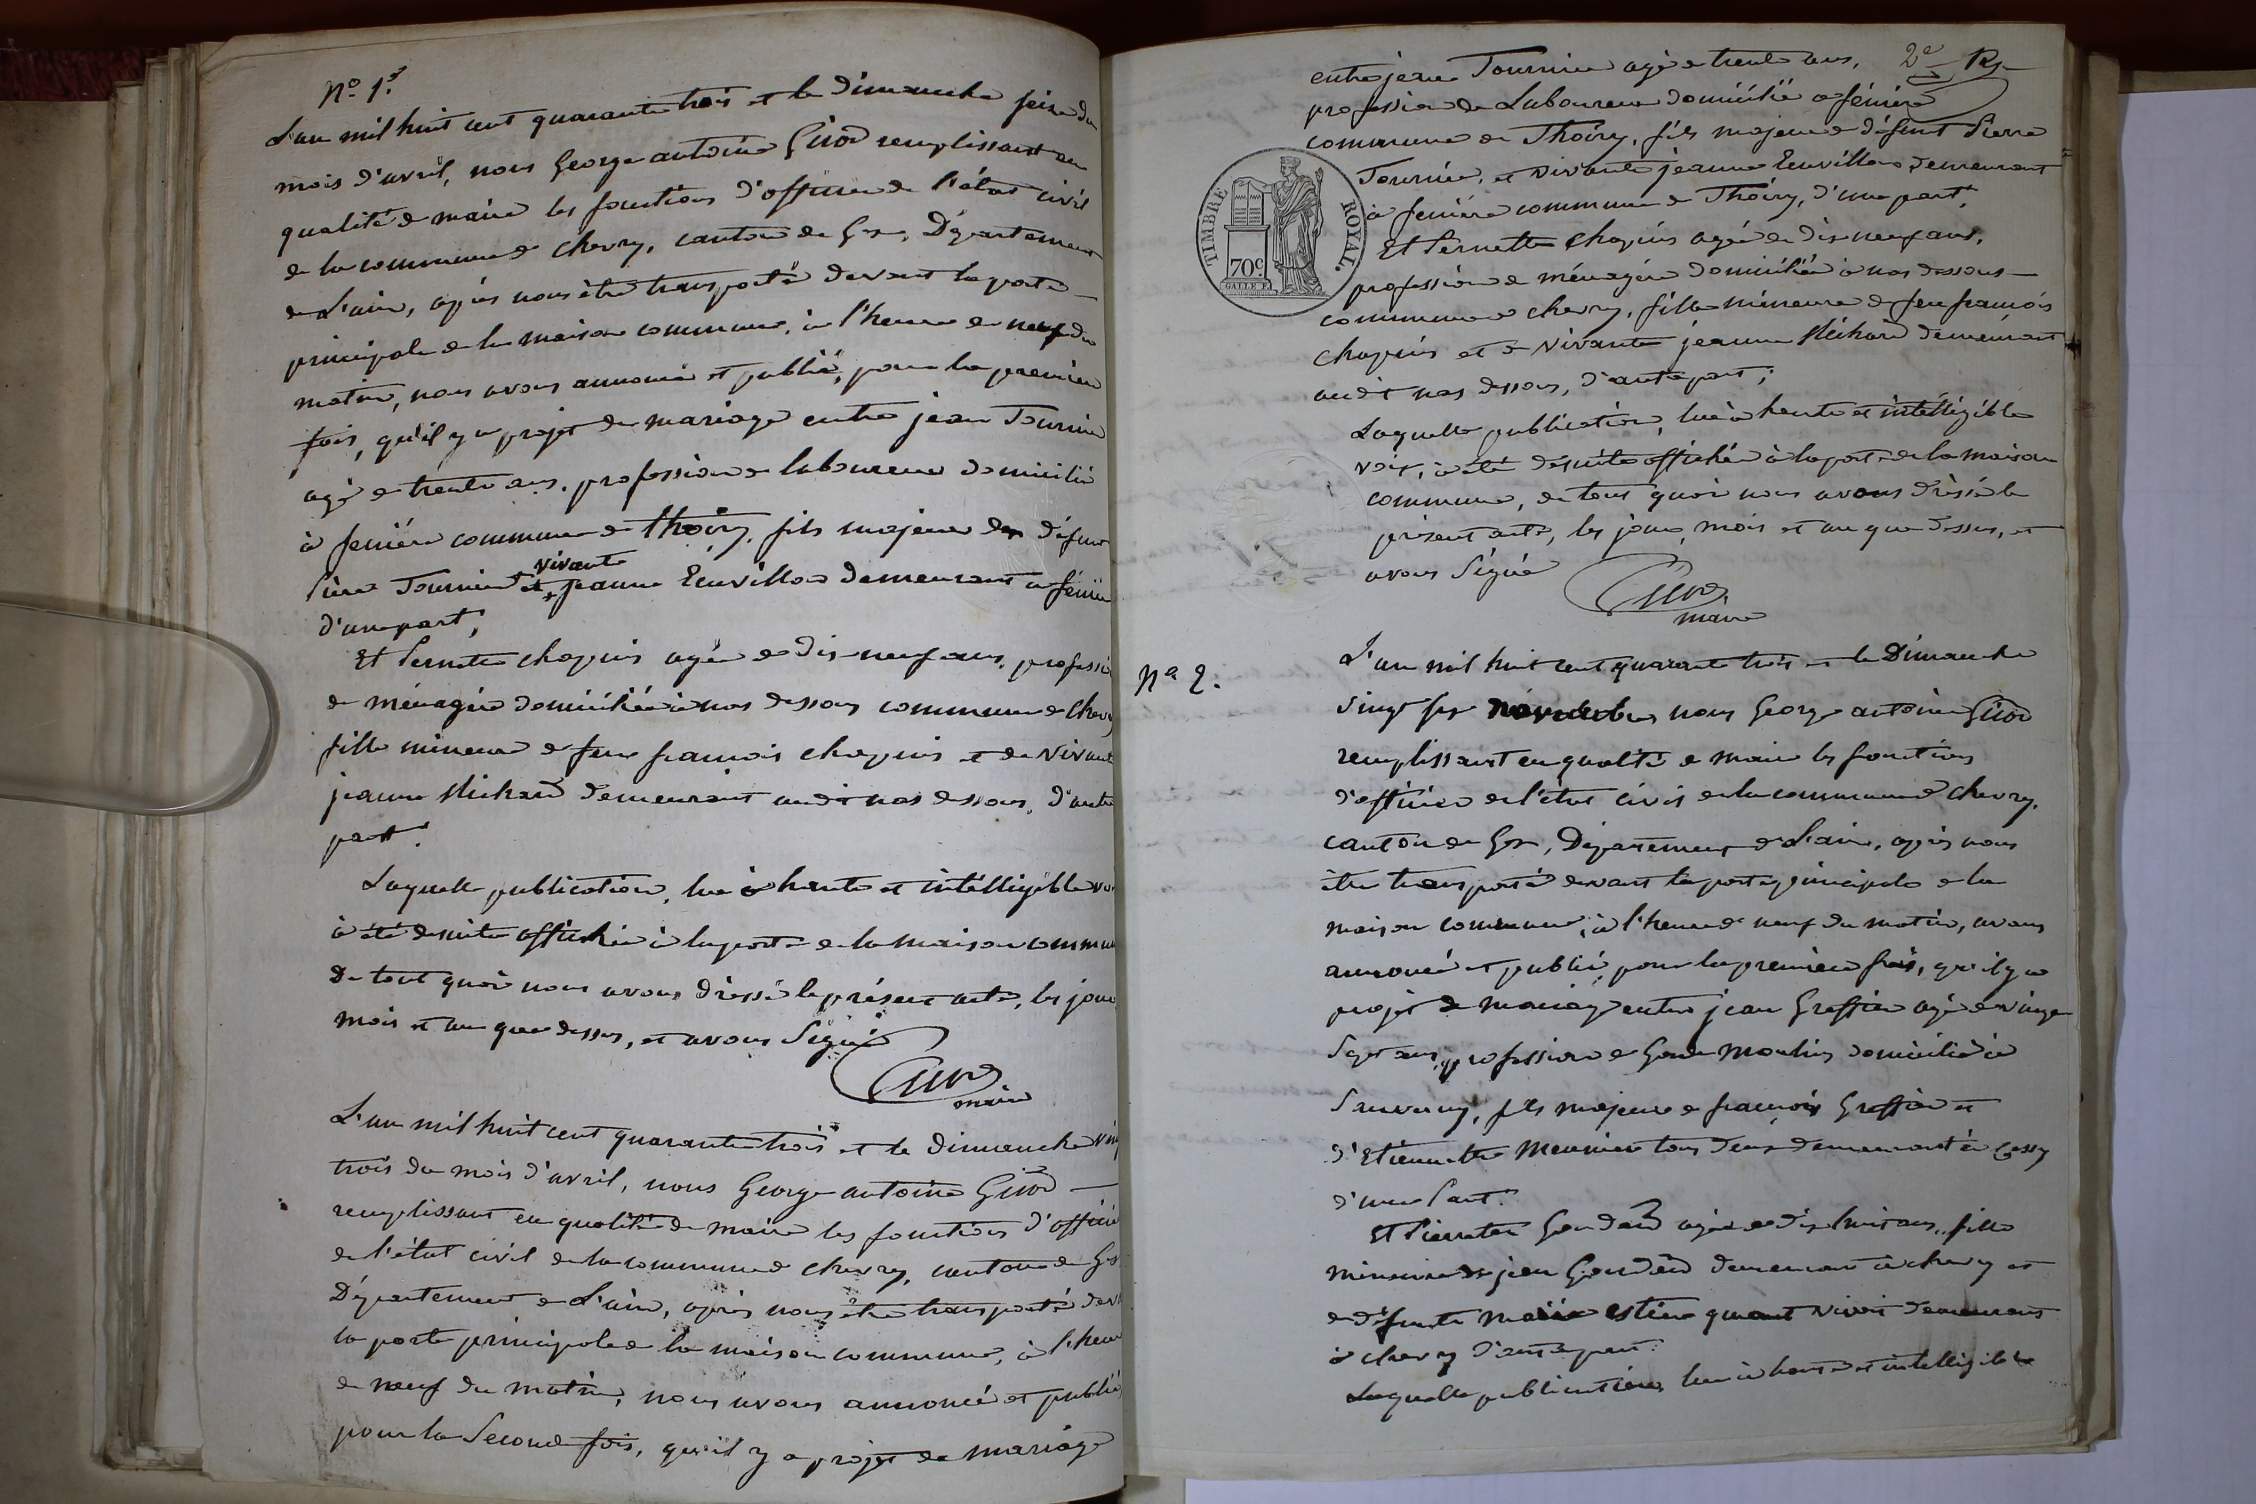 N.° 1.er
L'an mil huit cent quarante trois et le dimanche seize du
mois d'avril, nous George antoine Girod remplissant en
qualité de maire les fonctions d'officier de l'état civil
de la commune de chevry, canton de Gex, Département
de L'ain, après nous être transporté devant la porte
principale de la maison commune, à l'heure de neuf du
matin, nous avons annoncé et publié, pour la première
fois, qu'il y a projet de mariage entre jean Tournier
agé de trente ans, profession de laboureur domicilié
à fenière commune de thoiry, fils majeur de défunt
Pierre Tournier et vivante jeanne Ecuvillon demeurant à fénière
d'une part,
Et Pernette chapuis agée de dix neuf ans, profession
de ménagère domiciliée à nas dessous commune de chevry
fille mineure de feu françois chapuis et de vivante
jeanne Michard demeurant audit nas dessous, d'autre
part.
Laquelle publication, lue à haute et intélligible voix
à été de suite affichée à la porte de la maison commune
De tout quoi nous avons dressé le présent acte, les jour,
mois et an que dessus, et avons Signé
Girod
maire
L'an mil huit cent quarante trois et le dimanche vingt
trois du mois d'avril, nous George antoine Girod
remplissant en qualité de maire les fonctions d'officier
de l'état civil de la commune de chevry, canton de Gex
Département de L'ain, après nous être transporté devant
la porte principale de la maison commune, à l'heure
de neuf du matin, nous avons annoncé et publié,
pour la Seconde fois, qu'il y a projet de mariage
2e
entre jean Tournier agé de trente ans,
profession de Laboureur domicilié à fénière
commune de Thoiry, fils majeur de défunt Pierre
Tournier, et vivante jeanne Ecuvillon demeurant
à fenière commune de Thoiry, d'une part,
Et Pernette chapuis agée de dix neuf ans,
profession de ménagère domiciliée à nas dessous
commune de chevry, fille mineure de feu françois
chapuis et de vivante jeanne Michard demeurant
audit nas dessous, d'autre part;
Laquelle publication, lue à haute et intélligible
voix, à été de suite affichée à la porte de la maison
commune, de tout quoi nous avons dréssé le
présent acte, les jour, mois et an que dessus, et
avons Signé
Girod
maire
TIMBRE ROYAL.
70c.
GALLE F.
N.° 2.
L'an mil huit cent quarante trois et le Dimanche
vingt six novembre nous George antoine Girod
remplissant en qualité de maire les fonctions
d'officier de l'état civil de la commune de chevry,
canton de Gex, Département de L'ain, après nous
être transporté devant la porte principale de la
maison commune, à l'heure de neuf du matin, avons
annoncé et publié, pour la première fois, qu'il y a
projet de mariage entre jean Greffier agé de vingt
Sept ans, profession de Garde Moulin domicilié à
Sauverny, fils majeur de françois Greffier et
d'Etiennette Meunier tous deux demeurant à Cessy
d'une Part.
Et Pierrette Goudard agée de dix huit ans, fille
mineure de jean Goudard demeurant à chevry et
de défunte Marie estier quant vivait demeurant
à chevry d'autre part.
Laquelle publication lue à haute et intelligible